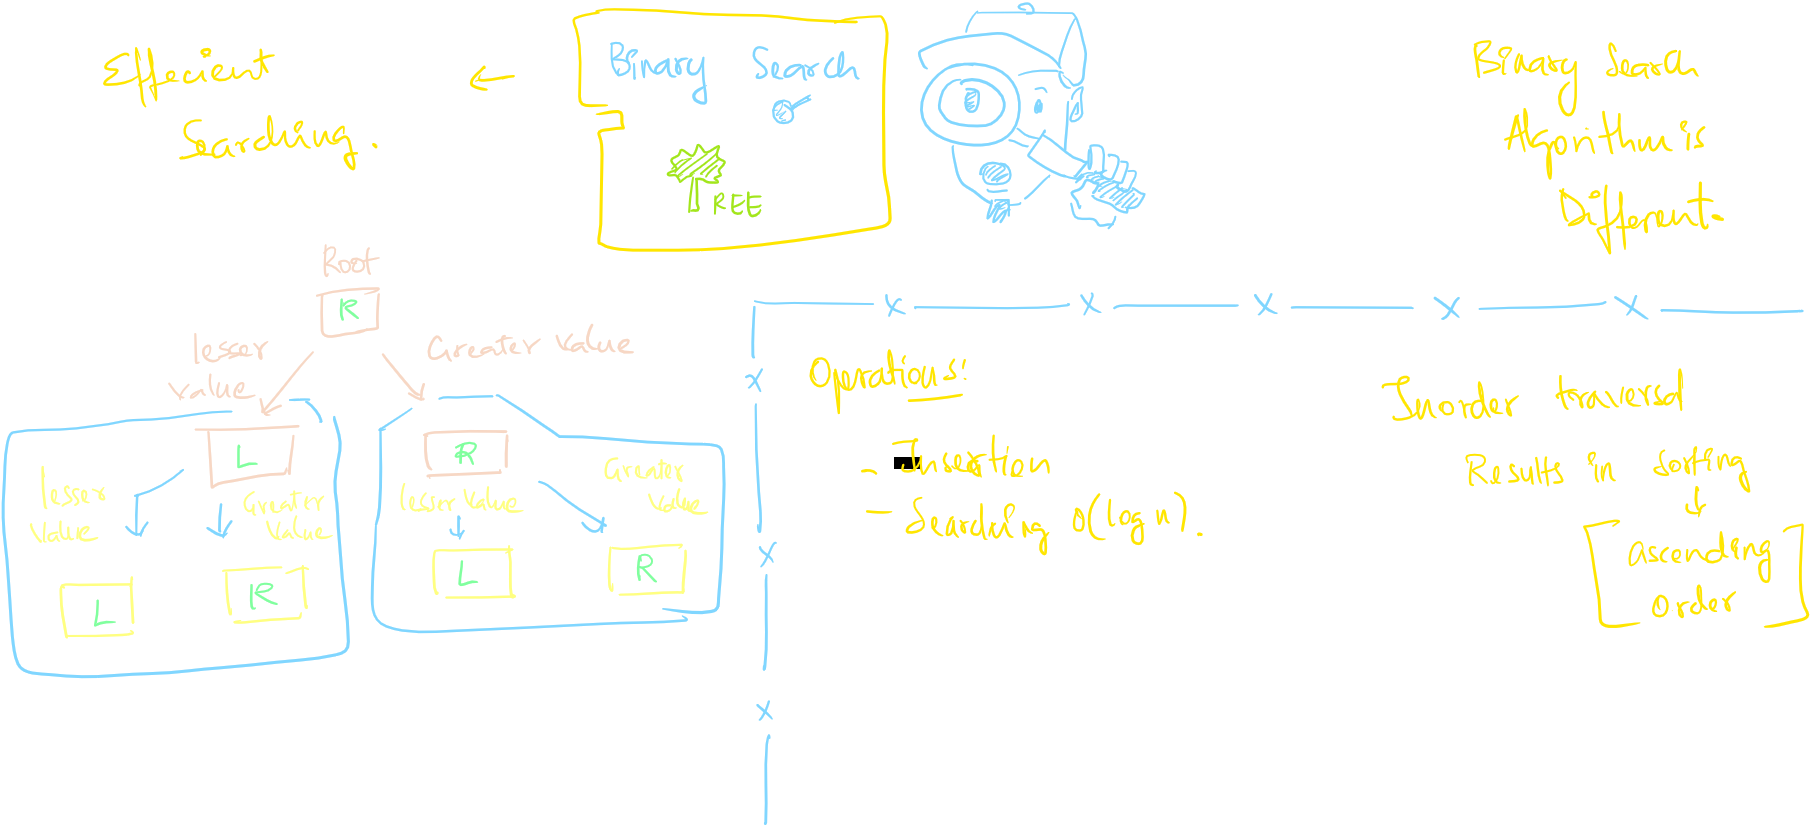 Effecient
Searching.
←
Binary Search
TREE
Binary Search
Algorithm is
Different.
Root
R
lesser
value
Greater Value
L
R
lesser
Value
Greater
Value
lesser Value
Greater
Value
L
R
L
R
Operations:
- Insertion
- Searching O(log n).
Inorder traversal
Results in Sorting
↓
[ascending
order]